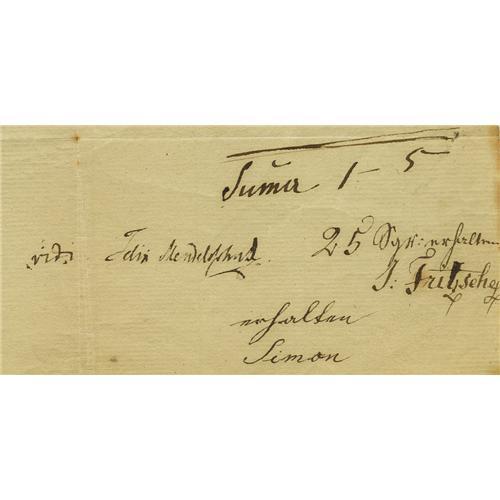 Suma 1 - 5
vidi Felix Mendelssohn 25 Sgr: erhalten
J: Fritzsche
erhalten
Simon